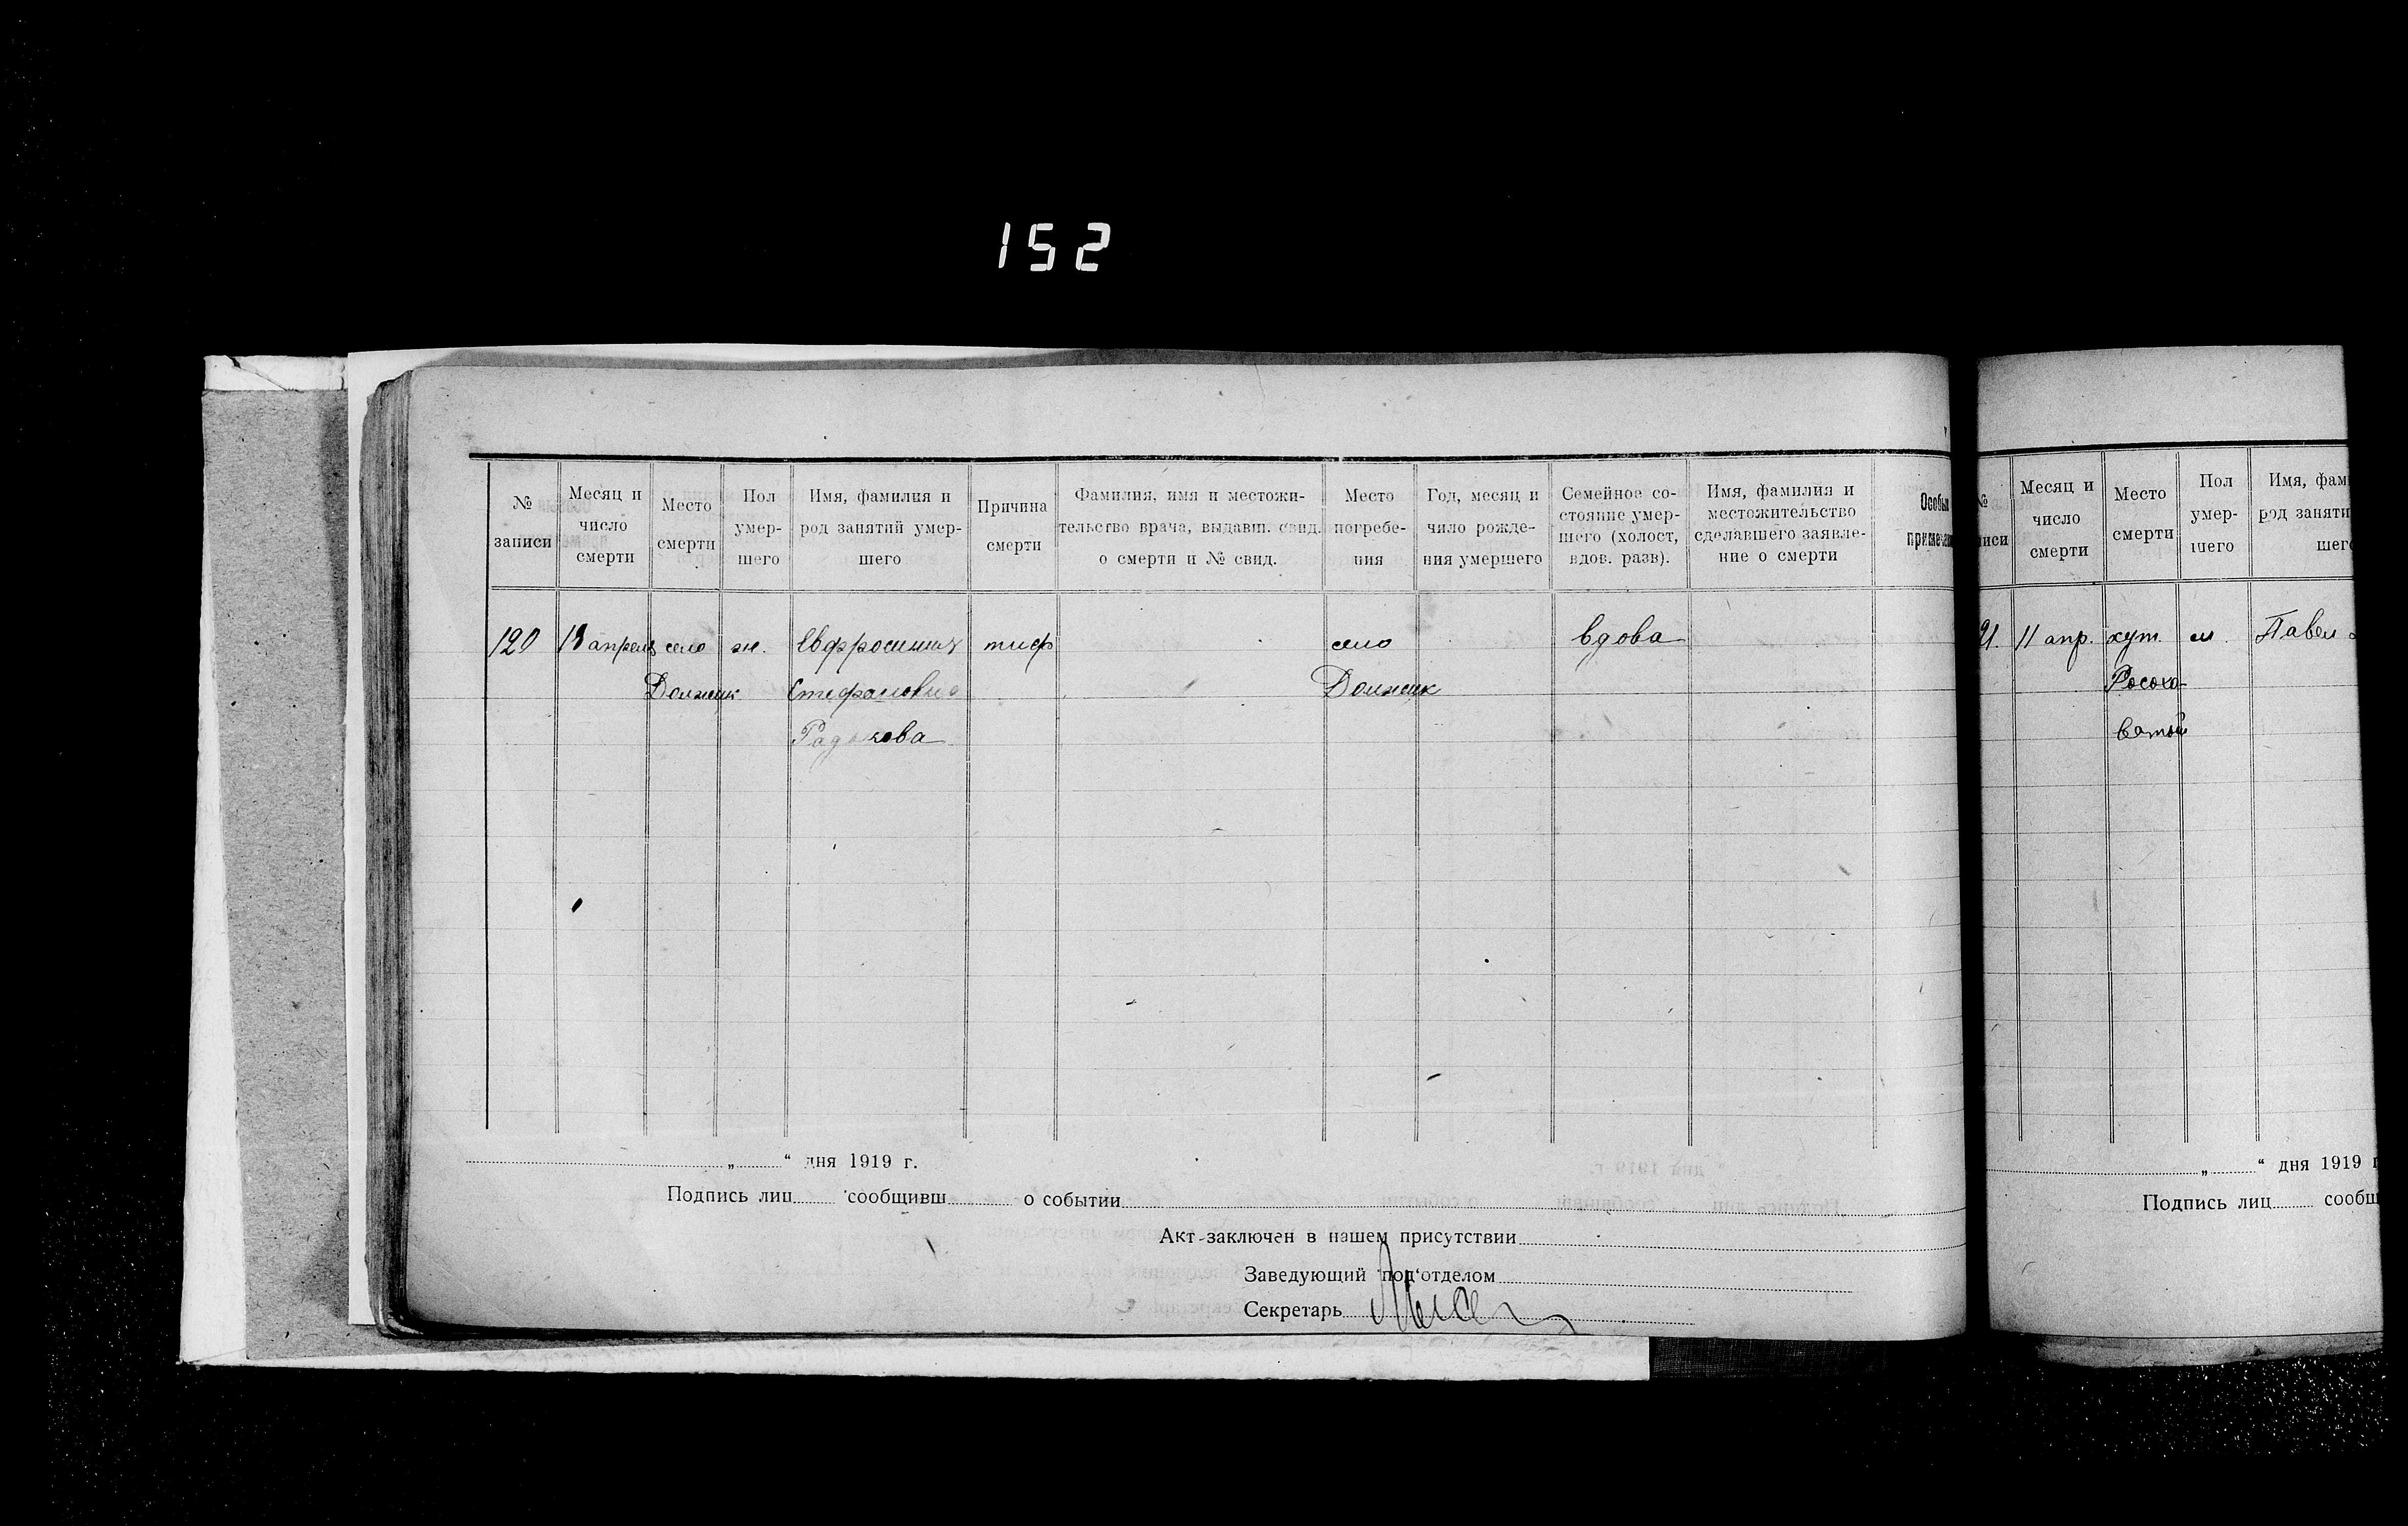 152
№ записи
Месяц и число смерти
Место смерти
Пол умер-шего
Имя, фамилия и род занятий умер-шего
Причина смерти
Фамилия, имя и местожи-тельство врача, выдавш. свид. о смерти и № свид.
Место погребе-ния
Год, месяц и чило рожде-ния умершего
Семейное со-стояние умер-шего (холост, вдов. разв).
Имя, фамилия и местожительство сделавшего заявле-ние о смерти
Особыя примечан
120 апреля село ж. Евфросиния тиф село вдова
Должик Стефановна Должик
„ “ дня 1919 г.
Подпись лиц сообщивш о событии
Акт заключен в нашем присутствии
Заведующий под‘отделом
Секретарь
№ писи
Месяц и число смерти
Место смерти
Пол умер-шего
Имя, фам
род заняти
шего
21. 11 апр. хут. м. Павел
Росохо-
ватый
„ “ дня 1919 г
Подпись лиц сообщ